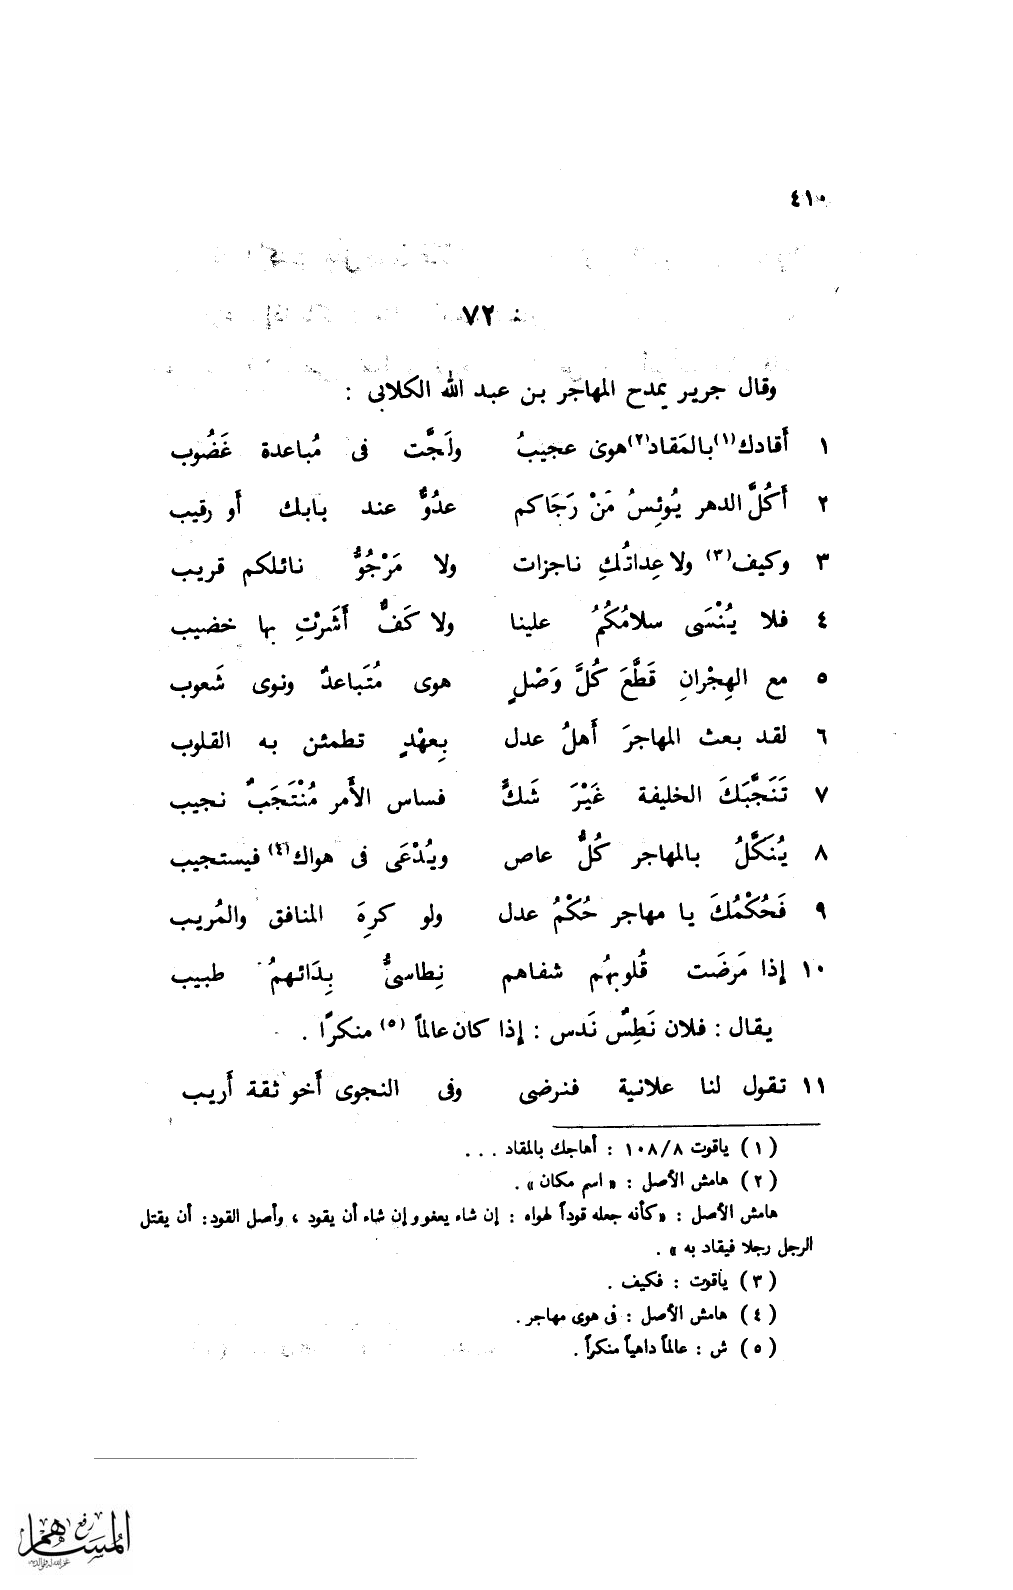 ٤١٠
٧٢
وقال جرير يمدح المهاجر بن عبد الله الكلابى :
١ أَقادك(١)بالمَقاد(٢)هوىً عجيبُ ولَجَّت فى مُباعدة غَضُوب
٢ أَكُلَّ الدهر يُوئِسُ مَنْ رَجَاكم عدُوٌّ عند بابك أَو رقيب
٣ وكيف(٣) ولا عِداتُكِ ناجزات ولا مَرْجُوُّ نائلكم قريب
٤ فلا يُنْسَى سلامُكُمُ علينا ولا كَفٌّ أَشَرْتِ بها خضيب
٥ مع الهِجْرانِ قَطَّعَ كُلَّ وَصْلٍ هوى مُتَباعدٌ ونوى شَعوب
٦ لقد بعث المهاجرَ أَهلُ عدل بِعهْدٍ تطمئن به القلوب
٧ تَنَجَّبَكَ الخليفة غَيْرَ شَكٍّ فساس الأَمر مُنْتَجَبٌ نجيب
٨ يُنَكَّلُ بالمهاجر كُلُّ عاص ويُدْعَى فى هواك(٤) فيستجيب
٩ فَحُكْمُكَ يا مهاجر حُكْمُ عدل ولو كرِهَ المنافق والمُريب
١٠ إذا مَرضَت قُلوبهُم شفاهم نِطاسىٌّ بِدَائهمُ طبيب
يقال : فلان نَطِسٌ نَدس : إذا كان عالماً (٥) منكرًا .
١١ تقول لنا علانية فنرضى وفى النجوى أَخو ثقة أَريب
(١) ياقوت ١٠٨/٨ : أهاجك بالمقاد ...
(٢) هامش الأصل : « اسم مكان » .
هامش الأصل : «كأنه جعله قوداً لهواه : إن شاء يعفو وإن شاء أن يقود ، وأصل القود: أن يقتل
الرجل رجلا فيقاد به » .
(٣) ياقوت : فكيف .
(٤) هامش الأصل : فى هوى مهاجر .
(٥) ش : عالماً داهياً منكراً .
رفع
المساهم